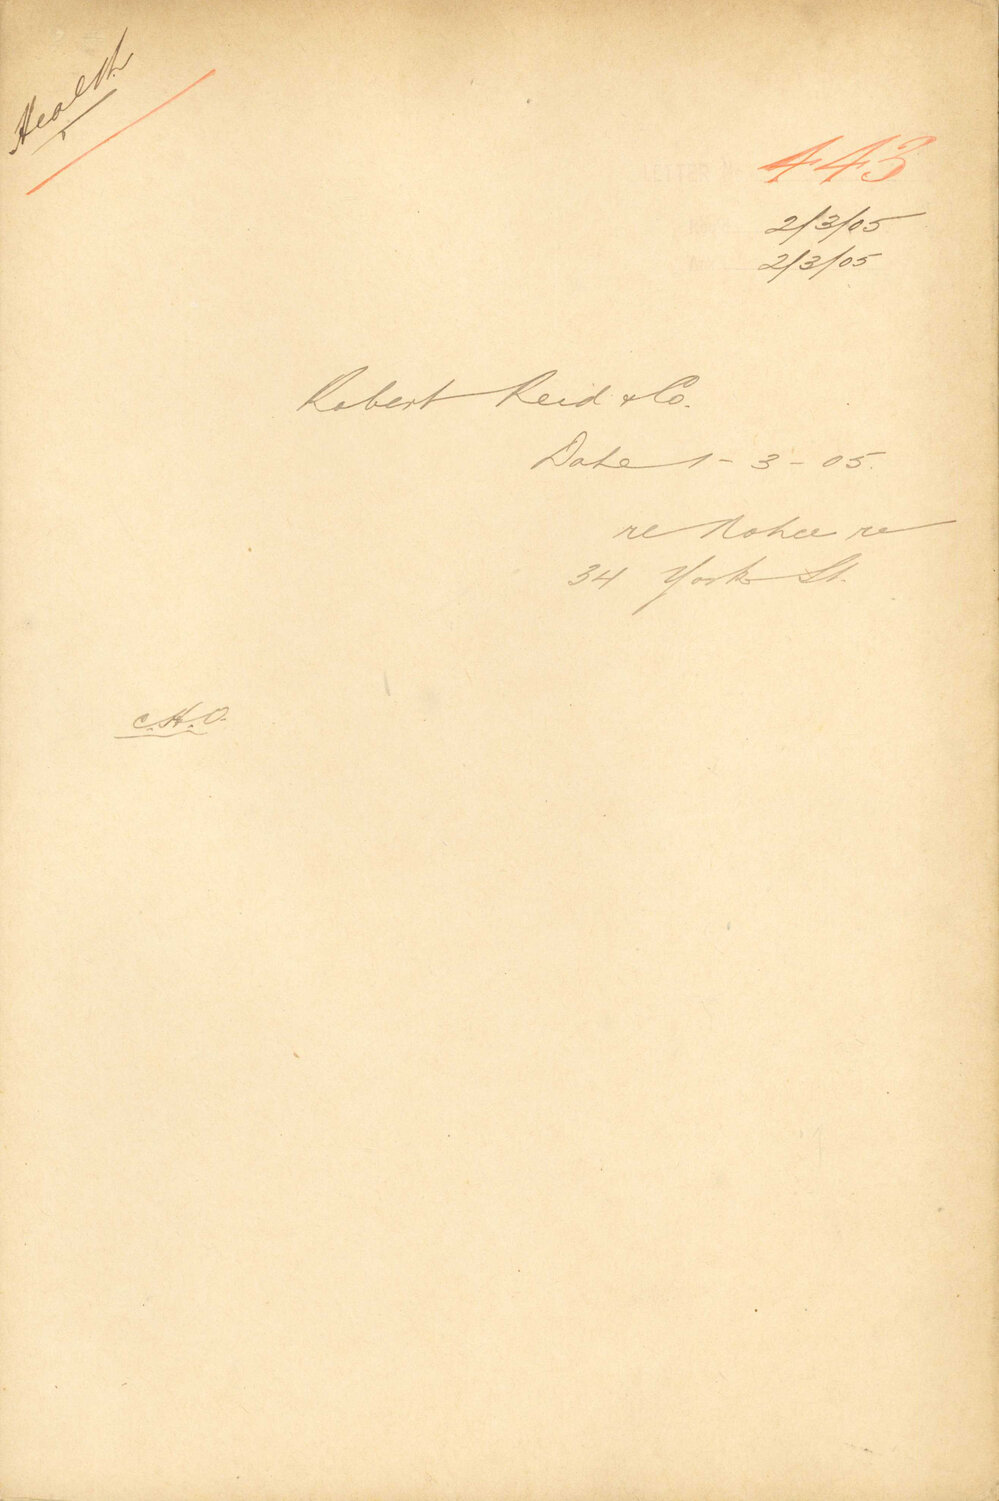 Health
443
2/3/05
2/3/05
Robert Reid & Co.
Date 1-3-05.
re Notice re
34 York St.
C.H.O.